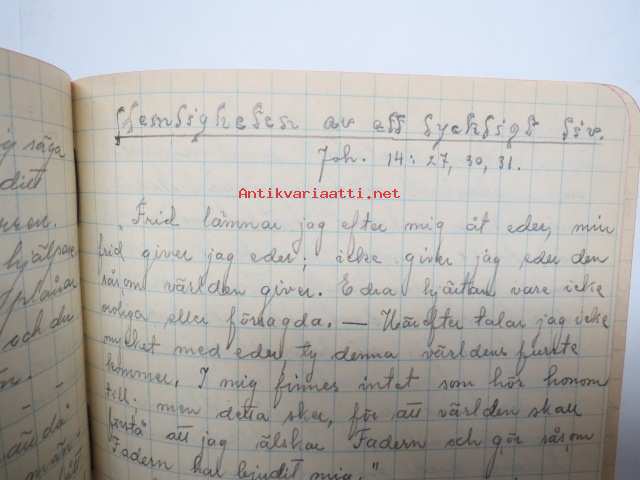 Hemligheten av ett lyckligt liv.
Joh. 14: 27, 30, 31.
Antikvariaatti.net
"Frid lämnar jag efter mig åt eder, min
frid giver jag eder; icke giver jag eder den
såsom världen giver. Edra hjärtan vare icke
oroliga eller försagda. — Härefter talar jag icke
mycket med eder ty denna världens furste
kommer. I mig finnes intet som hör honom
till. men detta sker, för att världen skall
förstå att jag älskar Fadern och gör såsom
Fadern har bjudit mig."
säga
ditt
hjälpare
och du